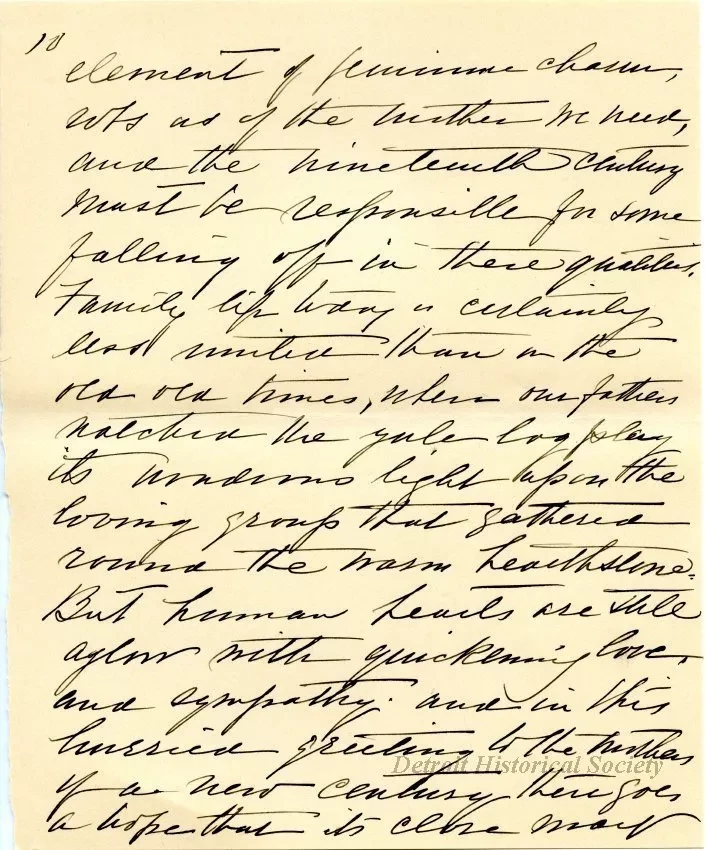 10
element of feminine charm,
as of the mother we need,
and the nineteenth century
must be responsible for some
falling off in these qualities.
Family life today is certainly
less united than in the
old old times, when our fathers
watched the yule log play
its wondrous light upon the
loving group that gathered
round the warm hearthstone.
But human hearts are still
aglow with quickening love,
and sympathy. and in this
hurried greeting to the mothers
of a new century there goes
a hope that its close may
Detroit Historical Society